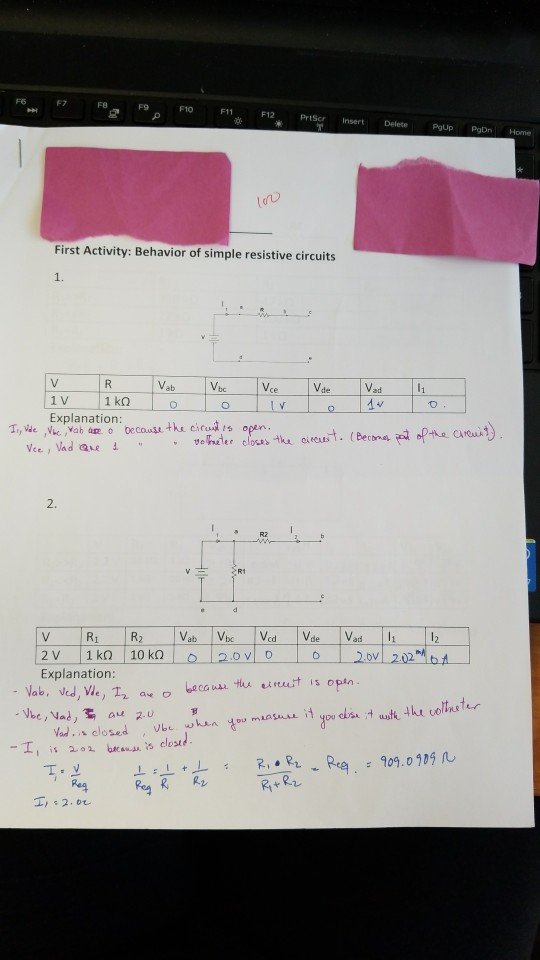 F6 F7 F8 F9 F10 F11 F12 PrtScr Insert Delete PgUp PgDn Home
100
First Activity: Behavior of simple resistive circuits
1.
I1 a R b c
V
d e
V R Vab Vbc Vce Vde Vad I1
1 V 1 kΩ 0 0 1V 0 1V 0.
Explanation:
I1, Vde, Vbc, Vab are 0 because the circuit is open.
Vce, Vad are 1 " " voltmeter closes the circuit. (Becomes part of the circuit).
2.
I1 a R2 I2 b
V R1
e d c
V R1 R2 Vab Vbc Vcd Vde Vad I1 I2
2 V 1 kΩ 10 kΩ 0 2.0V 0 0 2.0V 2.02 mA 0 A
Explanation:
- Vab, Vcd, Vde, I2 are 0 because the circuit is open.
- Vbc, Vad, are 2.0
Vad is closed, Vbc when you measure it you close it with the voltmeter
- I1 is 2.02 because is closed.
I1 = V/Req 1/Req = 1/R1 + 1/R2 = R1 • R2/R1+R2 = Req. = 909.0909 Ω
I1 = 2.02